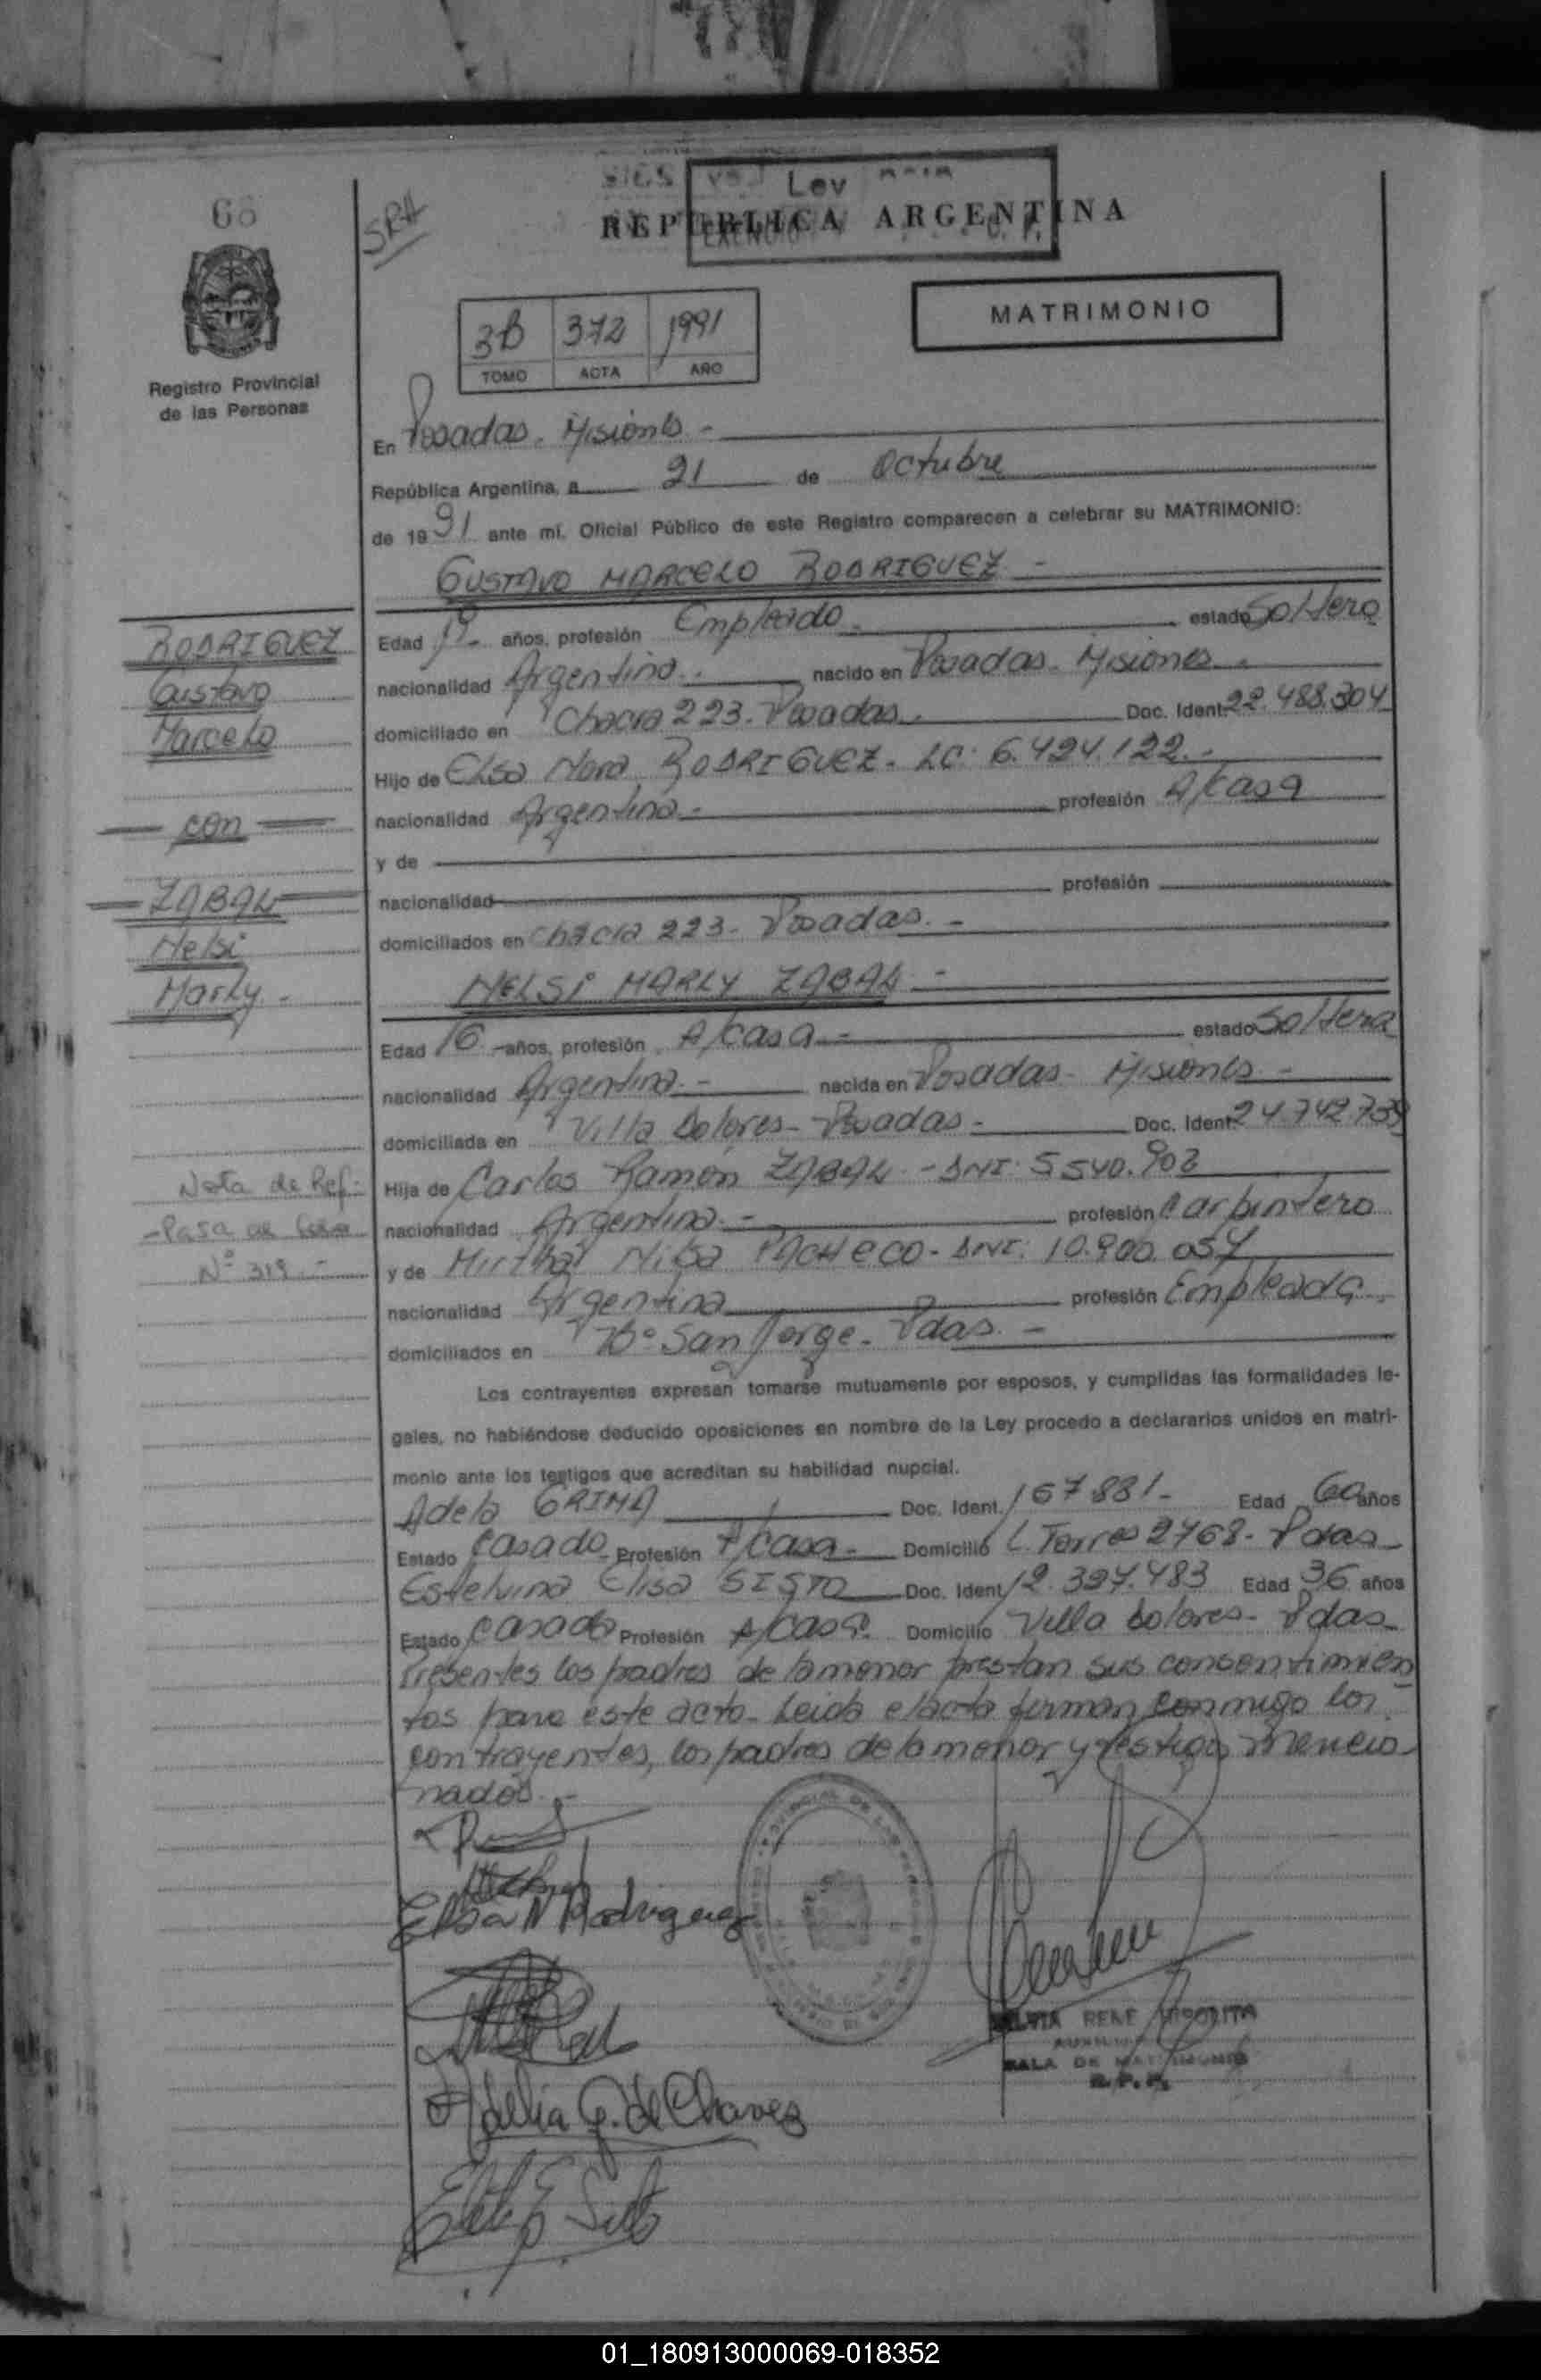 68
SRH
Ley
REPUBLICA ARGENTINA
MATRIMONIO
3B 372 1991
TOMO ACTA AÑO
Registro Provincial
de las Personas
En Posadas - Misiones -
República Argentina, a 21 de Octubre
de 1991 ante mí, Oficial Público de este Registro comparecen a celebrar su MATRIMONIO:
GUSTAVO MARCELO RODRIGUEZ -
RODRIGUEZ
Gustavo
Marcelo
con
ZABAL
Nelsi
Marly -
Edad 19 - años, profesión Empleado - estado Soltero
nacionalidad Argentina - nacido en Posadas - Misiones -
domiciliado en Chacra 223 - Posadas - Doc. Ident. 22.488.304
Hijo de Elsa Nora RODRIGUEZ - LC: 6.424.122 -
nacionalidad Argentina - profesión A/casa
y de
nacionalidad profesión
domiciliados en Chacra 223 - Posadas -
NELSI MARLY ZABAL -
Edad 16 - años, profesión A/casa - estado Soltera
nacionalidad Argentina - nacida en Posadas - Misiones -
domiciliada en Villa Dolores - Posadas - Doc. Ident. 24.742.739
Hija de Carlos Ramón ZABAL - DNI: 5540.902
nacionalidad Argentina - profesión Carpintero
y de Mirtha Nilsa PACHECO - DNI: 10.900.057
nacionalidad Argentina profesión Empleada -
domiciliados en Bº San Jorge - Pdas -
Nota de Ref:
- Pasa al folio
Nº 319 -
Los contrayentes expresan tomarse mutuamente por esposos, y cumplidas las formalidades le-
gales, no habiéndose deducido oposiciones en nombre de la Ley procedo a declararlos unidos en matri-
monio ante los testigos que acreditan su habilidad nupcial.
Adela GRIMA Doc. Ident. 167881 - Edad 60 años
Estado Casado - Profesión A/casa - Domicilio L. Torres 2768 - Pdas -
Estelvina Elisa SISTO Doc. Ident. 12.397.483 Edad 36 años
Estado Casado Profesión A/casa Domicilio Villa Dolores - Pdas -
Presentes los padres de la menor prestan sus consentimien
tos para este acto - Leida el acta firman conmigo los
contrayentes, los padres de la menor y testigos mencio
nados -
Elsa N Rodriguez
Adelia G. de Chavez
RENE HIPOLITA
SALA DE MATRIMONIO
R.P.P.
01_180913000069-018352